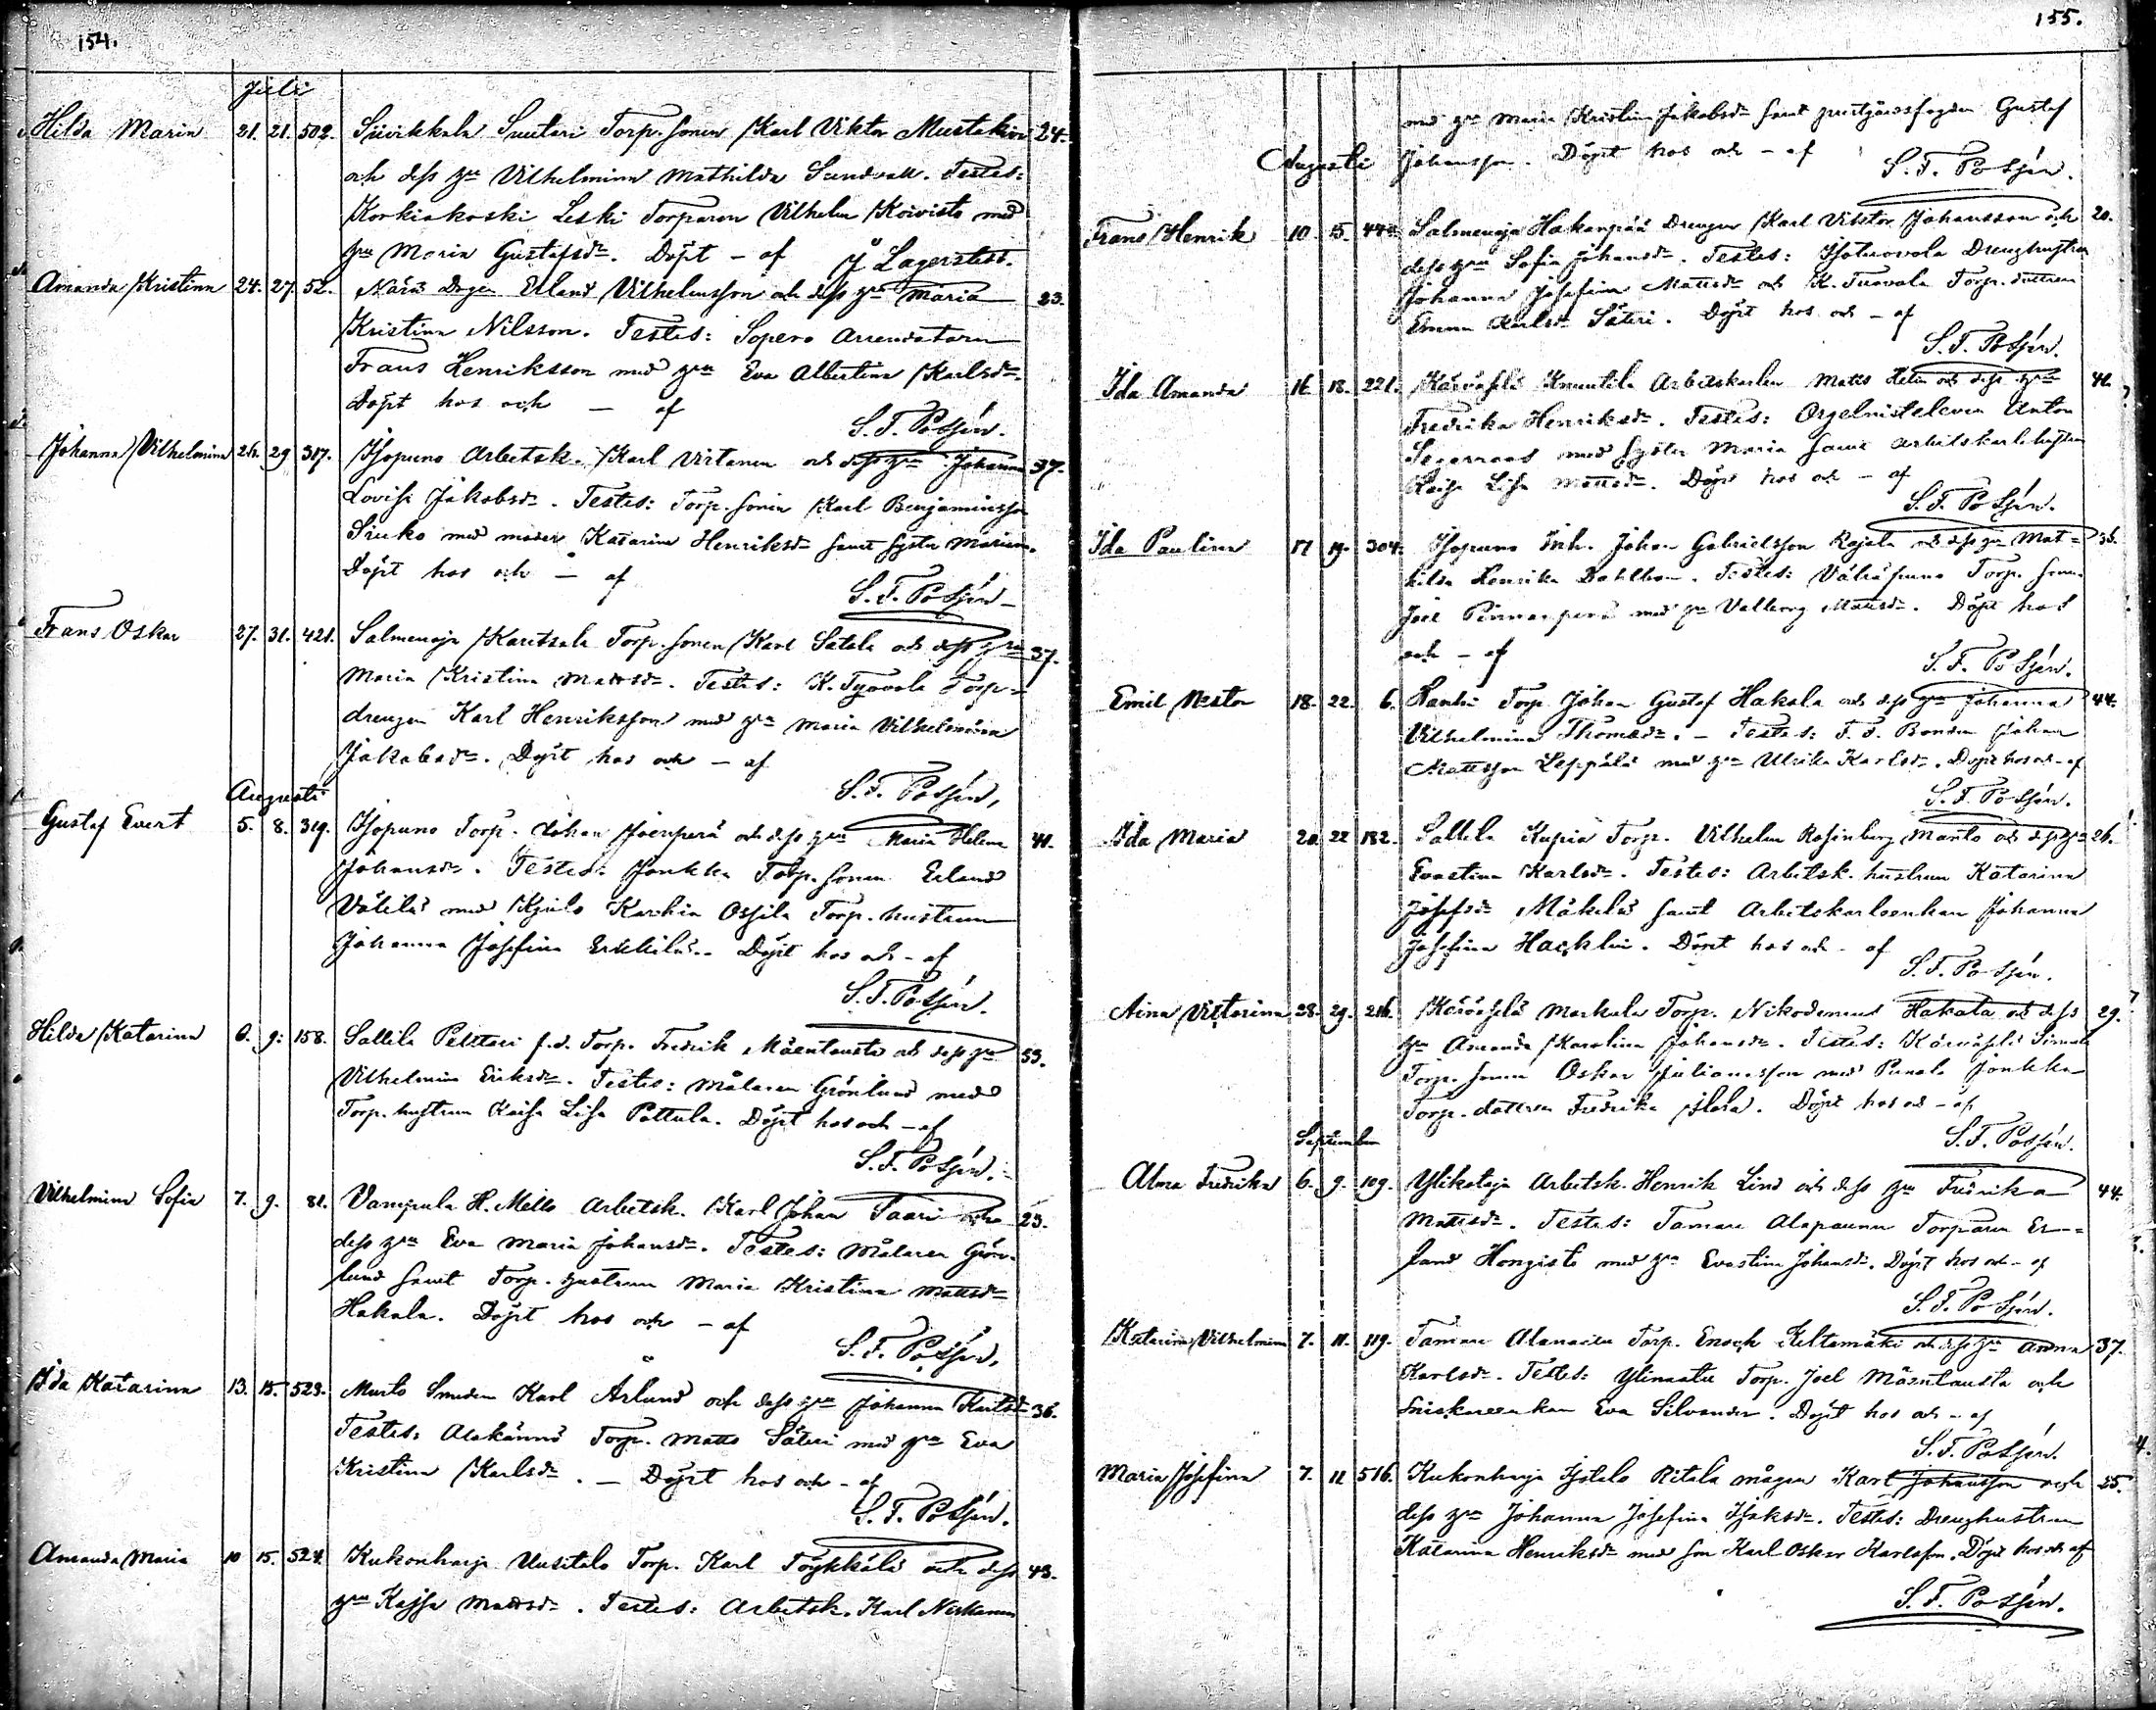 154.
Juli
Hilda Maria 21. 21. 502. Siivikkala Suutari Torp. sonen Karl Viktor Mustakivi 24.
och dess hu Vilhelmina Mathilda Sundvall. Testes:
Korkiakoski Leski Torparen Vilhelm Koivisto med
hu Maria Gustafsdr. Döpt – af J Lagerstedt.
Amanda Kristina 24. 27. 52. Erland Vilhelmsson och dess hu Maria 23.
Kristina Nilsson. Testes: Sopero Arrendatorn
Frans Henriksson med hu Eva Albertina Karlsdr.
Döpt hos och – af
S. F. Posjén.
Johanna Vilhelmina 26. 29 317. Isopuno Arbetsk. Karl Virtanen och dess hu Johanna 37.
Lovisa Jakobsdr. Testes: Torp. sonen Karl Benjaminsson
med moder Katarina Henriksdr samt syster Maria.
Döpt hos och – af
S. F. Posjén
Frans Oskar 27. 31. 421. Salmenoja Karitsala Torp. sonen Karl Satala och dess hu 37.
Maria Kristina Mattsdr. Testes: K. Torp=
drengen Karl Henriksson med hu Maria Vilhelmina
Jakobsdr. Döpt hos och – af
S. F. Posjén.
Augusti
Gustaf Evert 5. 8. 319. Isopuno Torp. Johan Joenperä och dess hu Maria Helena 41.
Johansdr. Testes: Jonkka Torp. sonen Erland
Välilä med Karhia Ossila Torp. hustrun
Johanna Josefina Erkkilä. Döpt hos och – af
S. F. Posjén.
Hilda Katarina 6. 9. 158. Sallila Pelttari f.d. Torp. Fredrik Mäentausta och dess hu 33.
Vilhelmina Eriksdr. Testes: Målaren Grönlund med
Torp. hustrun Kaisa Lisa Pottula. Döpt hos och – af
S. F. Posjén.
Vilhelmina Sofia 7. 9. 81. Vampula H. Mello Arbetsk. Karl Johan Saari och 23.
dess hu Eva Maria Johansdr. Testes: Målaren Grön-
lund samt Torp. hustrun Maria Kristina Mattsdr
Hakala. Döpt hos och – af
S. F. Posjén.
Ida Katarina 13. 15. 523. Murto Smeden Karl Årlund och dess hu Johanna Karlsdr 36.
Testes: Alakännö Torp. Matts Säteri med hu Eva
Kristina Karlsdr. – Döpt hos och – af
S. F. Posjén.
Amanda Maria 10 15. 524. Kukonharja Uusitalo Torp. Karl Töykkälä och dess 43.
hu Kajsa Mattsdr. Testes: Arbetsk. Karl
155.
med hu Maria Kristina Jakobsdr samt Gustaf
Johansson. Döpt hos och – af
S. F. Posjén.
Augusti
Frans Henrik 10 15. Salmenoja Hakanpää Drengen Karl Viktor Johansson och 20.
dess hu Sofia Johansdr. Testes: Isotuovola Drenghustrun
Johanna Josefina Mattsdr och K. Tuovola Torp. dottren
Emma Karlsdr Säteri. Döpt hos och – af
S. F. Posjén.
Ida Amanda 16. 18. 221. Köyöpelä Knuutila Arbetskarlen Matts Helin och dess hu 41.
Fredrika Henriksdr. Testes: Orgelnisteleven Anton
med syster Maria samt Arbetskarlshustrun
Kaisa Lisa Mattsdr. Döpt hos och – af
S. F. Posjén.
Ida Paulina 17 19. 304. Isopuno Inh. Johan Gabrielsson Rajala och dess hu Mat= 36.
hilda Henrika Dahlbom. Testes: Torp. sonen
Joel med hu Valborg Mattsdr. Döpt hos
och – af
S. F. Posjén.
Emil Nestor 18. 22. 6. Torp. Johan Gustaf Hakala och dess hu Johanna 44.
Vilhelmina Thomasdr. – Testes: F. d. Bonden Johan
Mattsson Leppälä med hu Ulrika Karlsdr. Döpt hos och – af
S. F. Posjén.
Ida Maria 20 22 182. Sallila Kupia Torp. Vilhelm Rosenberg Manto och dess hu 26.
Evastina Karlsdr. Testes: Arbetsk. hustrun Katarina
Josefsdr Mäkelä samt Arbetskarlsenkan Johanna
Josefina Hacklin. Döpt hos och – af
S. F. Posjén.
Aina Victorina 28. 29. 216. Köyöpelä Markula Torp. Nikodemus Hakala och dess 29.
hu Amanda Karolina Johansdr. Testes: Köyöpelä
Torp. sonen Oskar Julianasson med Punola Jonkka
Torp. dottren Fredrika Döpt hos och – af
S. F. Posjén.
September
Alma Fredrika 6. 9. 109. Ylikataja Arbetsk. Henrik Lind och dess hu Fredrika 44.
Mattsdr. Testes: Tamare Alapaunu Torparen Er-
land Hongisto med hu Evastina Johansdr. Döpt hos och – af
S. F. Posjén.
Katarina Vilhelmina 7. 11. 119. Tamare Torp. Enock Keltamäki och dess hu Anna 37
Karlsdr. Testes: Torp. Joel Mäentausta och
Eva Silvander. Döpt hos och – af
S. F. Posjén.
Maria Josefina 7. 11 516. Kukonharja Isotalo Ritala mågen Karl Johansson och 25.
dess hu Johanna Josefina Isaksdr. Testes: Drenghustrun
Katarina Henriksdr med son Karl Oskar Karlsson. Döpt hos och af
S. F. Posjén.